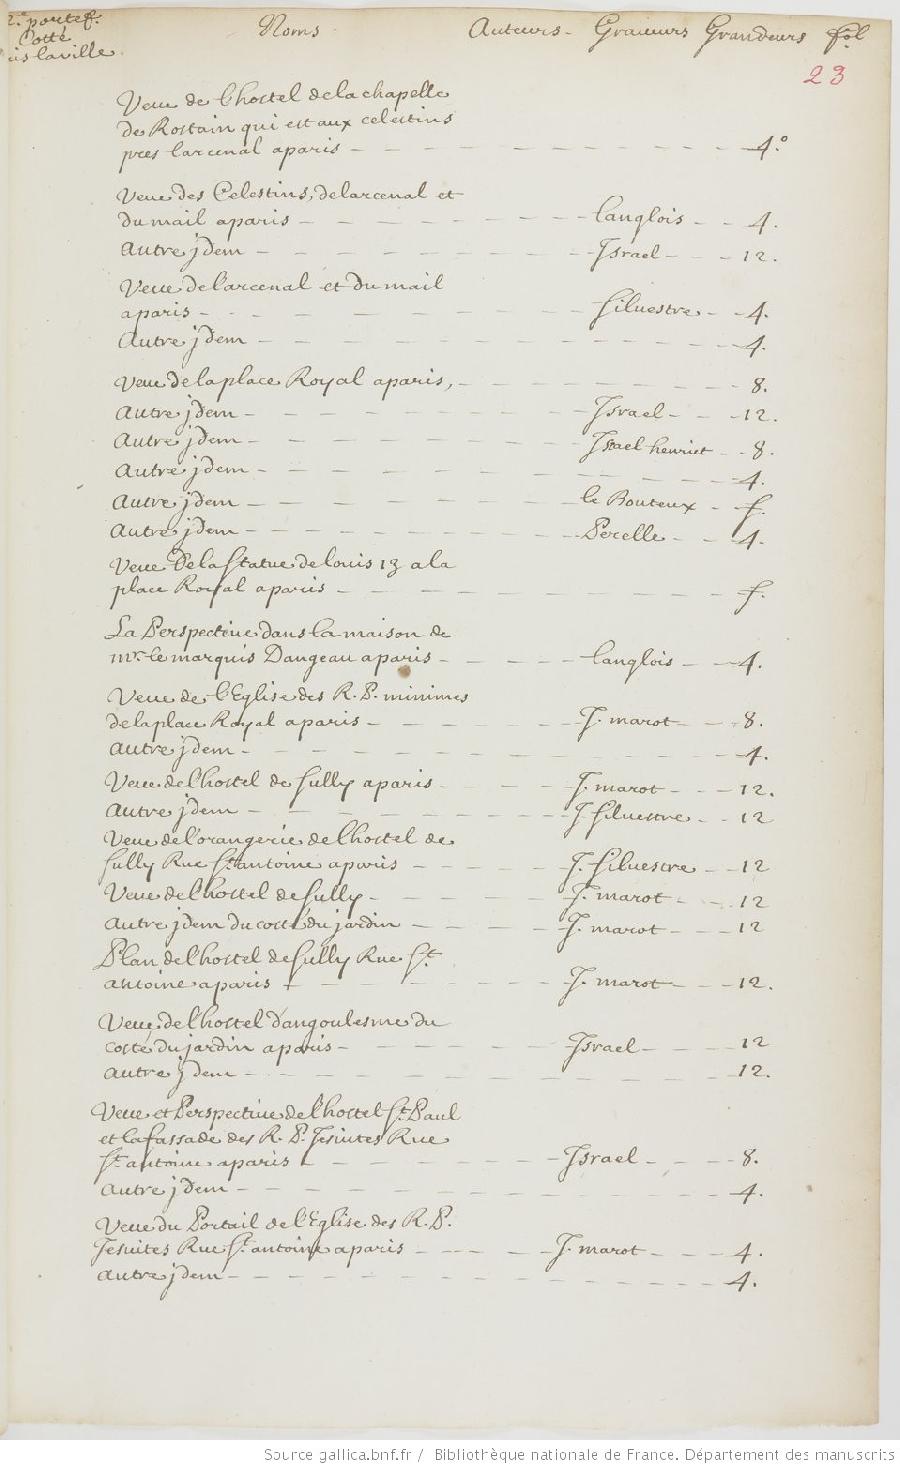 2.e portef. Noms Auteurs - Graueurs Grandeurs fol
Cotté
laville
23
Veue de l'hostel de la chapelle
de Rostain qui est aux celestins
pres larcenal aparis - - - - - - - - - - - - 4.°
Veue des Celestins, de larcenal et
du mail aparis - - - - - - - - langlois - - 4.
Autre jdem - - - - - - - - - Israel - - - 12.
Veue de l'arcenal et du mail
aparis - - - - - - - - - - - Siluestre - - 4.
Autre jdem - - - - - - - - - - - - - - 4.
Veue de la place Royal aparis, - - - - - - - - 8.
Autre jdem - - - - - - - - - Israel - - - 12.
Autre jdem - - - - - - - - - Israel henriet - - 8.
Autre jdem - - - - - - - - - - - - - - 4.
Autre jdem - - - - - - - - - le Bouteux - f.
Autre jdem - - - - - - - - - Perelle - - 4.
Veue De la Statue de louis 13 a la
place Royal aparis - - - - - - - - - - - f.
La Perspectiue dans la maison de
mr. le marquis Dangeau aparis - - - - - langlois - - 4.
Veue de l'Eglise des R. P. minimes
de la place Royal aparis - - - - - - J. marot - - 8.
Autre jdem - - - - - - - - - - - - - - 4.
Veue de l'hostel de Sully aparis - - - - - J. marot - - - 12.
Autre jdem - - - - - - - - - J. Siluestre - - 12
Veue de l'orangerie de l'hostel de
Sully Rue St. antoine aparis - - - - - J. Siluestre - - 12
Veue de l'hostel de Sully - - - - - - J. marot - - - 12
Autre jdem du costé du jardin - - - - - J. marot - - - 12
Plan de l'hostel de Sully Rue St.
antoine aparis - - - - - - - - J. marot - - - 12.
Veue de l'hostel d'angoulesme du
costé du jardin aparis - - - - - - - Israel - - - 12
Autre jdem - - - - - - - - - - - - - - 12.
Veue et Perspectiue de l'hostel St. Paul
et la fassade des R. P. Jesuites Rue
St. antoine aparis - - - - - - - - Israel - - - 8.
Autre jdem - - - - - - - - - - - - - - 4.
Veue du Portail de l'Eglise des R. P.
Jesuites Rue St. antoine aparis - - - - - J. marot - - - 4.
Autre jdem - - - - - - - - - - - - - - 4.
Source gallica.bnf.fr / Bibliothèque nationale de France. Département des manuscrits